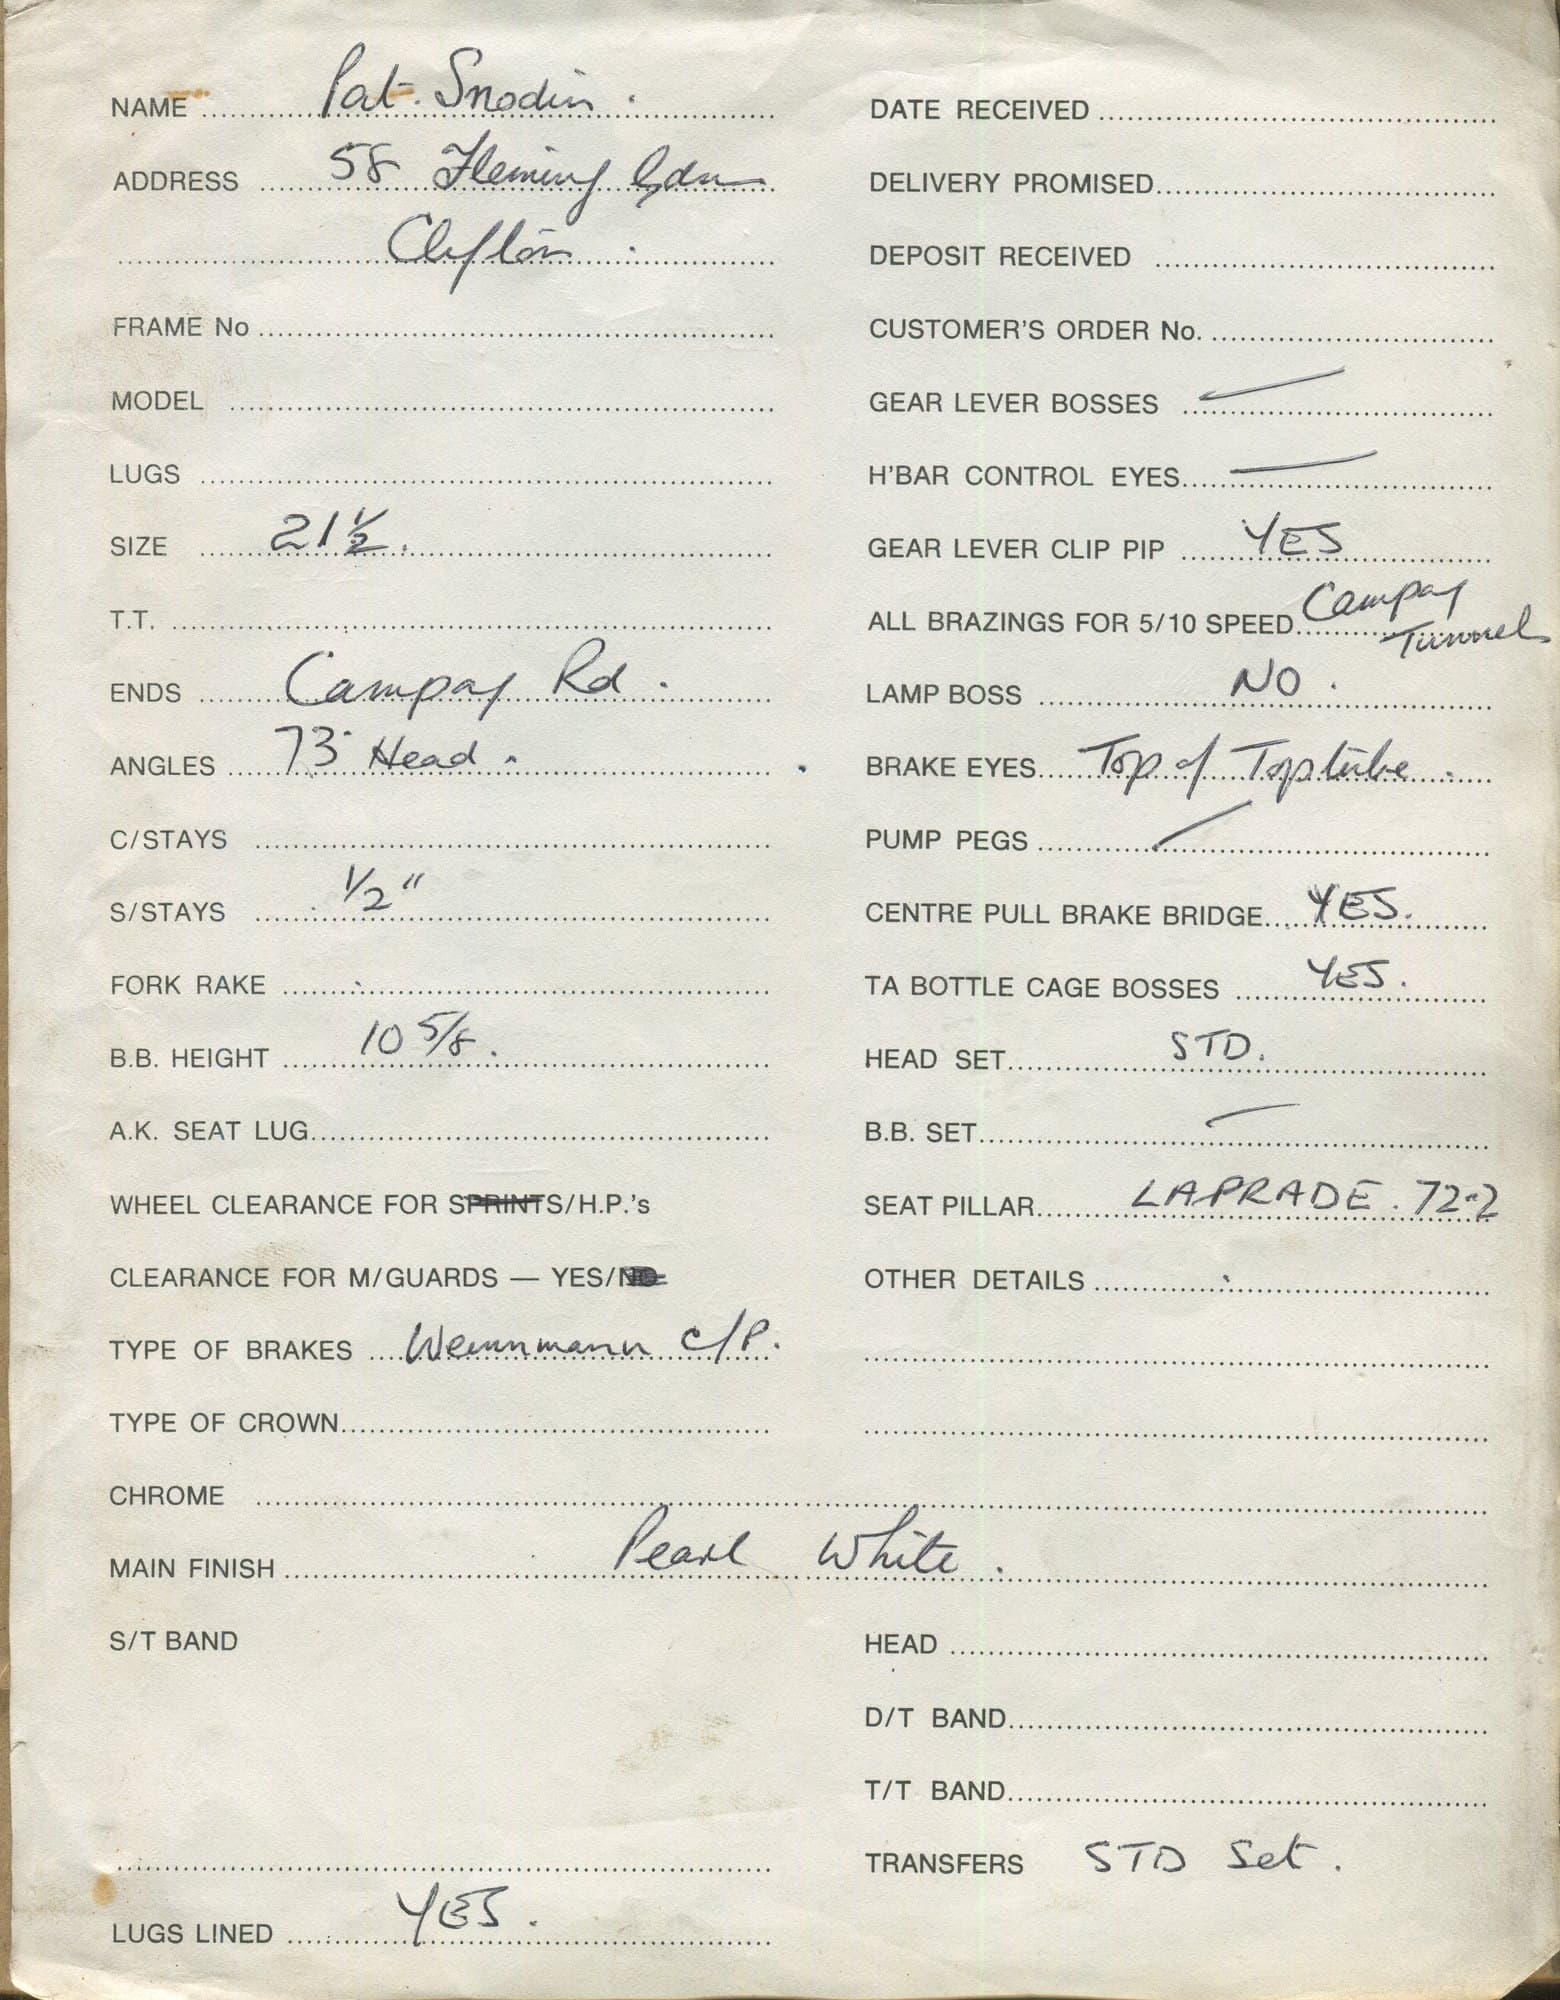 NAME Pat. Snodin.
ADDRESS 58 Fleming Gdns
Clifton.
FRAME No
MODEL
LUGS
SIZE 21 1/2.
T.T.
ENDS Campag Rd.
ANGLES 73° Head.
C/STAYS
S/STAYS 1/2"
FORK RAKE
B.B. HEIGHT 10 5/8.
A.K. SEAT LUG
WHEEL CLEARANCE FOR SPRINTS/H.P.'s
CLEARANCE FOR M/GUARDS — YES/NO
TYPE OF BRAKES Weinnmann C/P.
TYPE OF CROWN
CHROME
MAIN FINISH Pearl White.
S/T BAND
LUGS LINED YES.
DATE RECEIVED
DELIVERY PROMISED
DEPOSIT RECEIVED
CUSTOMER'S ORDER No.
GEAR LEVER BOSSES —
H'BAR CONTROL EYES —
GEAR LEVER CLIP PIP YES
ALL BRAZINGS FOR 5/10 SPEED Campag
Tunnels
LAMP BOSS NO.
BRAKE EYES Top of Toptube.
PUMP PEGS —
CENTRE PULL BRAKE BRIDGE YES.
TA BOTTLE CAGE BOSSES YES.
HEAD SET STD.
B.B. SET —
SEAT PILLAR LAPRADE. 72-2
OTHER DETAILS
HEAD
D/T BAND
T/T BAND
TRANSFERS STD Set.